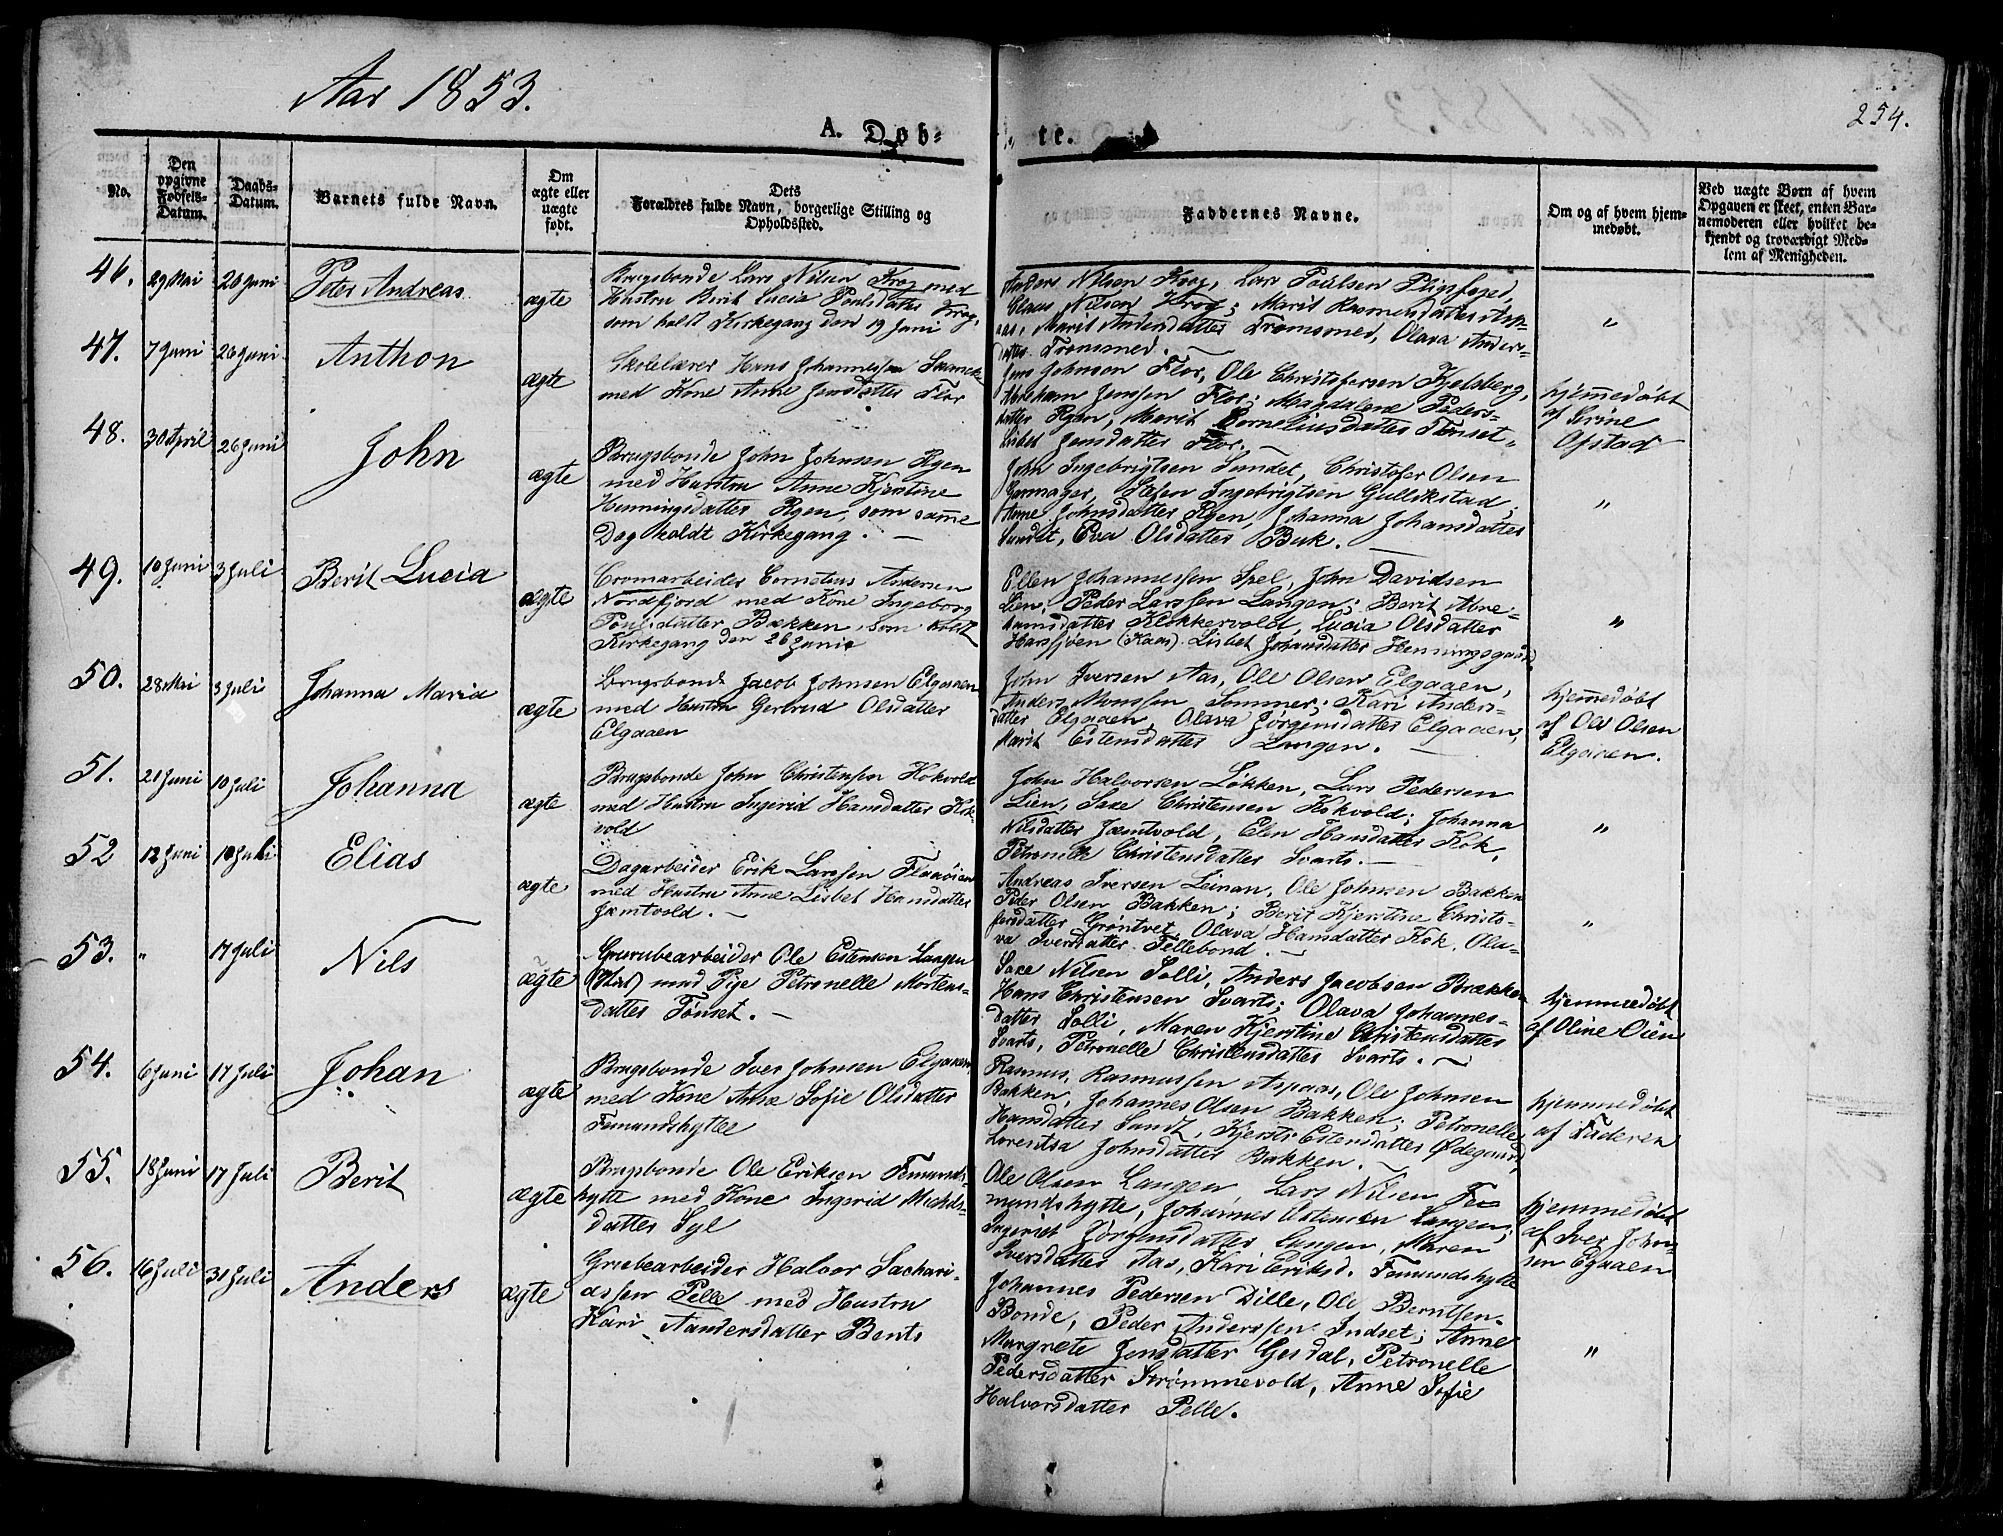 Aar 1853.
254.
A. Døb-
te.
No.
Den opgivne Fødsels-Datum.
Daabs-Datum.
Barnets fulde Navn.
Om ægte eller uægte født.
Dets
Forældres fulde Navn, borgerlige Stilling og
Opholdssted.
Faddernes Navne.
Om og af hvem hjem-
medøbt.
Ved uægte Børn af hvem
Opgaven er skeet, enten Bar-
nemoderen eller hvilket be-
kjendt og troværdigt Med-
lem af Menigheden.
46. 29 Mai 26 Juni Peter Andreas ægte
Brugsbonde Lars Nilsen Krog med
Hustru Berit Lucia Poulsdatter Krog,
som holdt Kirkegang den 19 Juni
Anders Nilsen Krog, Lars Poulsen Pligsfoged,
Claus Nilsen Krog; Marit Rasmusdatter Asp-
aas, Marit Andersdatter Tromsmed, Olava Anders-
datter Tromsmed.
"
47. 7 Juni 26 Juni Anthon ægte
Skolelærer Hans Johannessen
med Kone Anne Jensdatter Flor
Jens Johnsen Flor, Ole Christofersen Kjelsberg,
Abraham Jenssen Flor; Magdalene Peders-
datter Rgen, Marit Corneliusdatter Tønset,
Lisbet Jensdatter Flor.
hjemmedøbt
af Serine
Opstad
48. 30 April 26 Juni John ægte
Brugsbonde John Johnsen Rgen
med Hustru Anne Kjerstine
Henningsdatter Rgen, som samme
Dag holdt Kirkegang.
John Ingebrigtsen Sundet, Christofer Olsen
Ingebrigtsen Gullikstad;
Anne Johnsdatter Rgen, Johanna Johansdatter
Sundet, Eva Olsdatter Bak.
"
49. 10 Juni 3 Juli Berit Lucia ægte
Cromarbeider Cornelius Andersen
Nordfjord med Kone Ingeborg
Poulsdatter Bækken, som holdt
Kirkegang den 26 Juni
Ellen Johannessen Spel, John Davidsen
Lien, Peder Larssen Langen; Berit Abra-
hamsdatter Klokkervold, Lucia Olsdatter
Harssjøen (Kaas) Lisbet Johansdatter Henningsgaard
"
50. 28 Mai 3 Juli Johanna Maria ægte
Brugsbonde Jacob Johnsen Elgaaen
med Hustru Gertrud Olsdatter
Elgaaen
John Iversen Aas, Ole Olsen Elgaaen,
Anders Monssen Sommer; Kari Anders-
datter Elgaaen, Olava Jørgensdatter Elgaaen,
Marit Estensdatter Langen.
hjemmedøbt
af Ole Olsen
Elgaaen.
51. 21 Juni 10 Juli Johanna ægte
Brugsbonde John Christensen Hokvold
med Hustru Ingerid Hansdatter Kok-
vold
John Halvorsen Løkken, Lars Pedersen
Lien, Saxe Christensen Kokvold; Johanna
Nilsdatter Jæmtvold, Elen Hansdatter Kok,
Petronelle Christensdatter Svarts.
"
52 12 Juni 10 Juli Elias ægte
Dagarbeider Erik Larssen Flaaøien
med Hustru Anne Lisbet Hansdatter
Jæmtvold.
Andreas Iversen Leinan, Ole Johnsen Bakken
Peder Olsen Bakken; Berit Kjerstine Christo-
fersdatter Grøntvet, Olava Hansdatter Kok, Ola-
va Iversdatter Fellebond.
"
53. " 17 Juli Nils ægte
Grurubearbeider Ole Estensen Langen
med Pige Petronelle Mortens-
datter Tønset.
Saxe Nilsen Solli, Anders Jacobsen Brækken
Hans Christensen Svarts; Olava Johannes-
datter Solli, Maren Kjerstine Christensdatter
Svarts, Petronelle Christensdatter Svarts.
hjemmedøbt
af Oline Oien
54. 6 Juni 17 Juli Johan ægte
Brugsbonde Iver Johnsen Elgaaen
med Kone Anne Sofie Olsdatter
Femundshytte
Rasmus Rasmussen Aspaas, Ole Johnsen
Bakken, Johannes Olsen Bakken; Petronelle
Hansdatter Sundt, Kjersti Estensdatter Ødegaard,
Lorentsa Johnsdatter Bakken.
hjemmedøbt
af Faderen
55. 18 Juni 17 Juli Berit ægte
Brugsbonde Ole Eriksen Femunds-
hytte med Kone Ingerid Michels-
datter Syl
Ole Olsen Langen, Lars Nilsen Fe-
mundshytte, Johannes Estensen Langen;
Ingerid Jørgensdatter Langen, Maren
Iversdatter Aas, Kari Eriksd. Femundshytte
hjemmedøbt
af Iver John-
sen Egaaen
56. 16 Juli 31 Juli Anders ægte
Grubearbeider Halvor Sachari-
assen Pelle med Hustru
Kari Aandersdatter Bents
Johannes Pedersen Dille, Ole Berntsen
Bonde, Peder Anderssen Indset; Anne
Margrete Jensdatter Gesdal, Petronelle
Pedersdatter Strømmevold, Anne Sofie
Halvorsdatter Pelle.
"